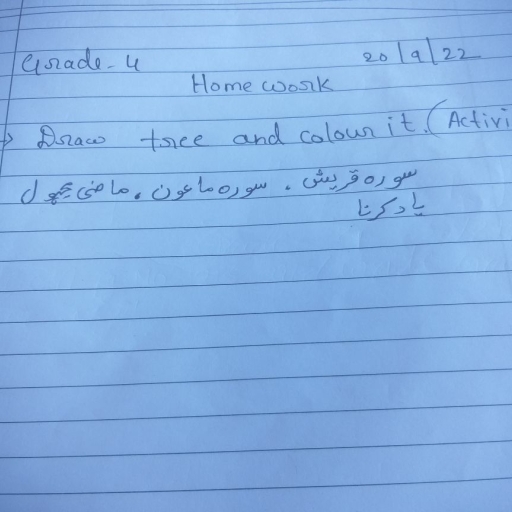 Grade-4 20/9/22
Home work
Draw tree and colour it. (Activi
سوره قریش ، سوره ماعون ، ماضی مجہول
یاد کرنا